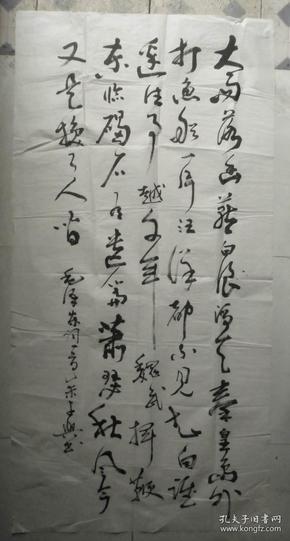 大雨落幽燕白浪滔天秦皇岛外
打渔船一片汪洋都不见知向谁
边往事越千年魏武挥鞭
东临碣石有遗篇萧瑟秋风今
又是换了人间
毛泽东词一首
孔夫子旧书网